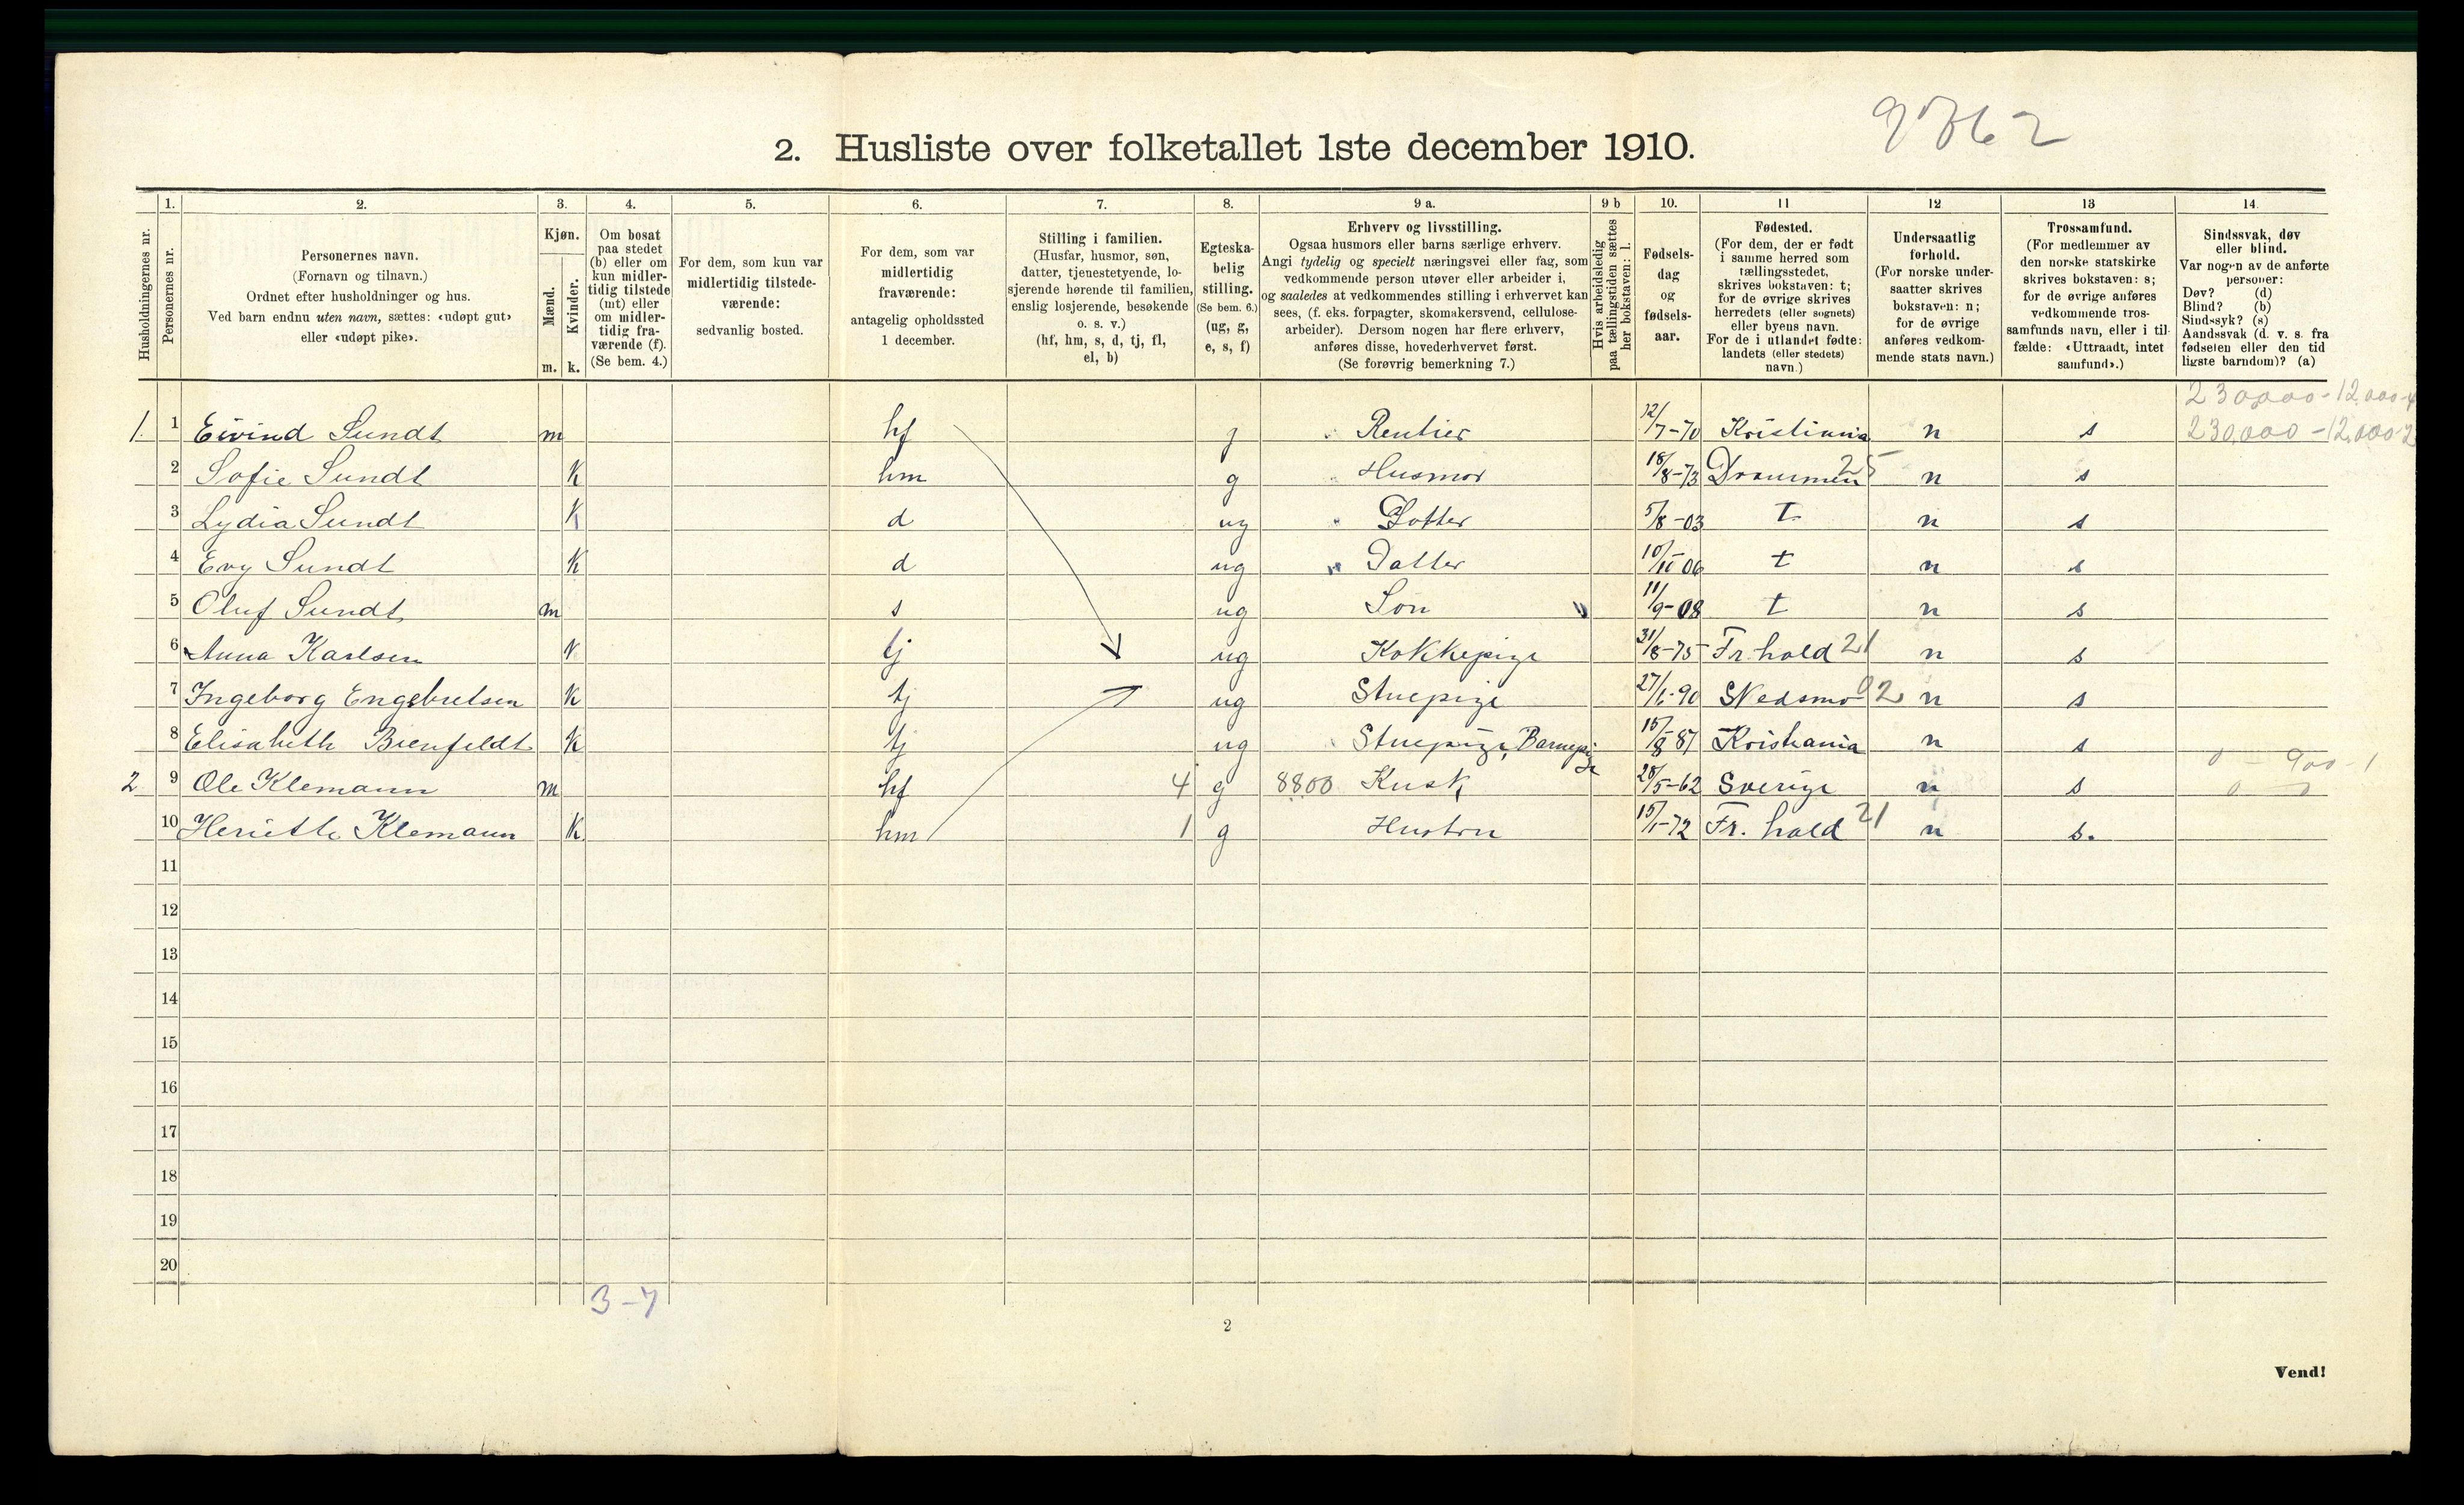 2. Husliste over folketallet 1ste december 1910.
9762
Husholdningernes nr.
1. Personernes nr.
2. Personernes navn.
(Fornavn og tilnavn.)
Ordnet efter husholdninger og hus.
Ved barn endnu uten navn, sættes: «udøpt gut»
eller «udøpt pike».
3. Kjøn.
Mænd. Kvinder.
m. k.
4. Om bosat
paa stedet
(b) eller om
kun midler-
tidig tilstede
(mt) eller
om midler-
tidig fra-
værende (f).
(Se bem. 4.)
5. For dem, som kun var
midlertidig tilstede-
værende:
sedvanlig bosted.
6. For dem, som var
midlertidig
fraværende:
antagelig opholdssted
1 december.
7. Stilling i familien.
(Husfar, husmor, søn,
datter, tjenestetyende, lo-
sjerende hørende til familien,
enslig losjerende, besøkende
o. s. v.)
(hf, hm, s, d, tj, fl,
el, b)
8. Egteska-
belig
stilling.
(Se bem. 6.)
(ug, g,
e, s, f)
9 a. Erhverv og livsstilling.
Ogsaa husmors eller barns særlige erhverv.
Angi tydelig og specielt næringsvei eller fag, som
vedkommende person utøver eller arbeider i,
og saaledes at vedkommendes stilling i erhvervet kan
sees, (f. eks. forpagter, skomakersvend, cellulose-
arbeider). Dersom nogen har flere erhverv,
anføres disse, hovederhvervet først.
(Se forøvrig bemerkning 7.)
9 b Hvis arbeidsledig
paa tællingstiden sættes
her bokstaven: l.
10. Fødsels-
dag
og
fødsels-
aar.
11 Fødested.
(For dem, der er født
i samme herred som
tællingsstedet,
skrives bokstaven: t;
for de øvrige skrives
herredets (eller sognets)
eller byens navn.
For de i utlandet fødte:
landets (eller stedets)
navn.)
12 Undersaatlig
forhold.
(For norske under-
saatter skrives
bokstaven: n;
for de øvrige
anføres vedkom-
mende stats navn.)
13 Trossamfund.
(For medlemmer av
den norske statskirke
skrives bokstaven: s;
for de øvrige anføres
vedkommende tros-
samfunds navn, eller i til-
fælde: «Uttraadt, intet
samfund».)
14. Sindssvak, døv
eller blind.
Var nogen av de anførte
personer:
Døv? (d)
Blind? (b)
Sindssyk? (s)
Aandssvak (d. v. s. fra
fødselen eller den tid
ligste barndom)? (a)
230,000-12,000-4
1. 1 Eivind Sundt m hf g Rentier 12/7-70 Kristiania n s 230,000-12,000-2
2 Sofie Sundt k hm g Husmor 18/8-73 Drammen 25 n s
3 Lydia Sundt k d ug Dotter 5/8-03 t n s
4 Evy Sundt k d ug Datter 10/10 06 t n s
5 Oluf Sundt m s ug Søn 11/9-08 t n s
6 Anna Karlsen k tj ug Kokkepige 31/8-75 Fr. hald 21 n s
7 Ingeborg Engebretsen k tj ug Stuepige 27/1-90 Skedsmo 02 n s
8 Elisabeth Bienfeldt k tj ug Stuepige, Barnepige 15/8 87 Kristiania n s
0 - 900-1
2. 9 Ole Klemann m hf 4 g 8800 Kusk 28/5-62 Sverige n s 0 0
10 Heriette Klemann k hm 1 g Hustru 15/1-72 Fr. hald 21 n s.
11
12
13
14
15
16
17
18
19
20
3-7
2
Vend!